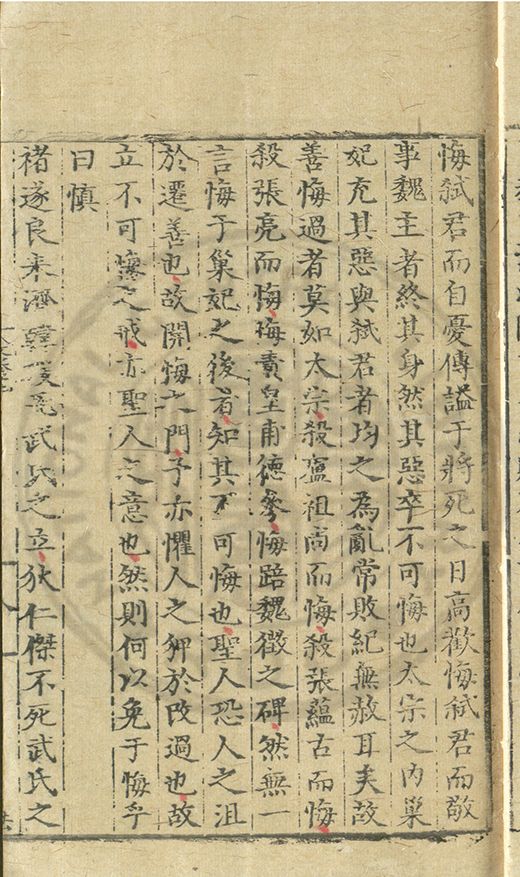 悔弑君而自憂傳謚于將死之日高歡悔弑君而敬
事魏主者終其身然其惡卒不可悔也太宗之内巢
妃充其惡與弑君者均之為亂常敗紀無赦耳矣故
善悔過者莫如太宗殺盧祖尚而悔殺張蘊古而悔
殺張亮而悔悔責皇甫德參悔踣魏徵之碑然無一
言悔于巢妃之後者知其不可悔也聖人恐人之沮
於遷善也故開悔之門予亦懼人之狎於改過也故
立不可悔之戒亦聖人之意也然則何以免于悔乎
曰慎
褚遂良來濟韓瑗死武氏之立狄仁傑不死武氏之